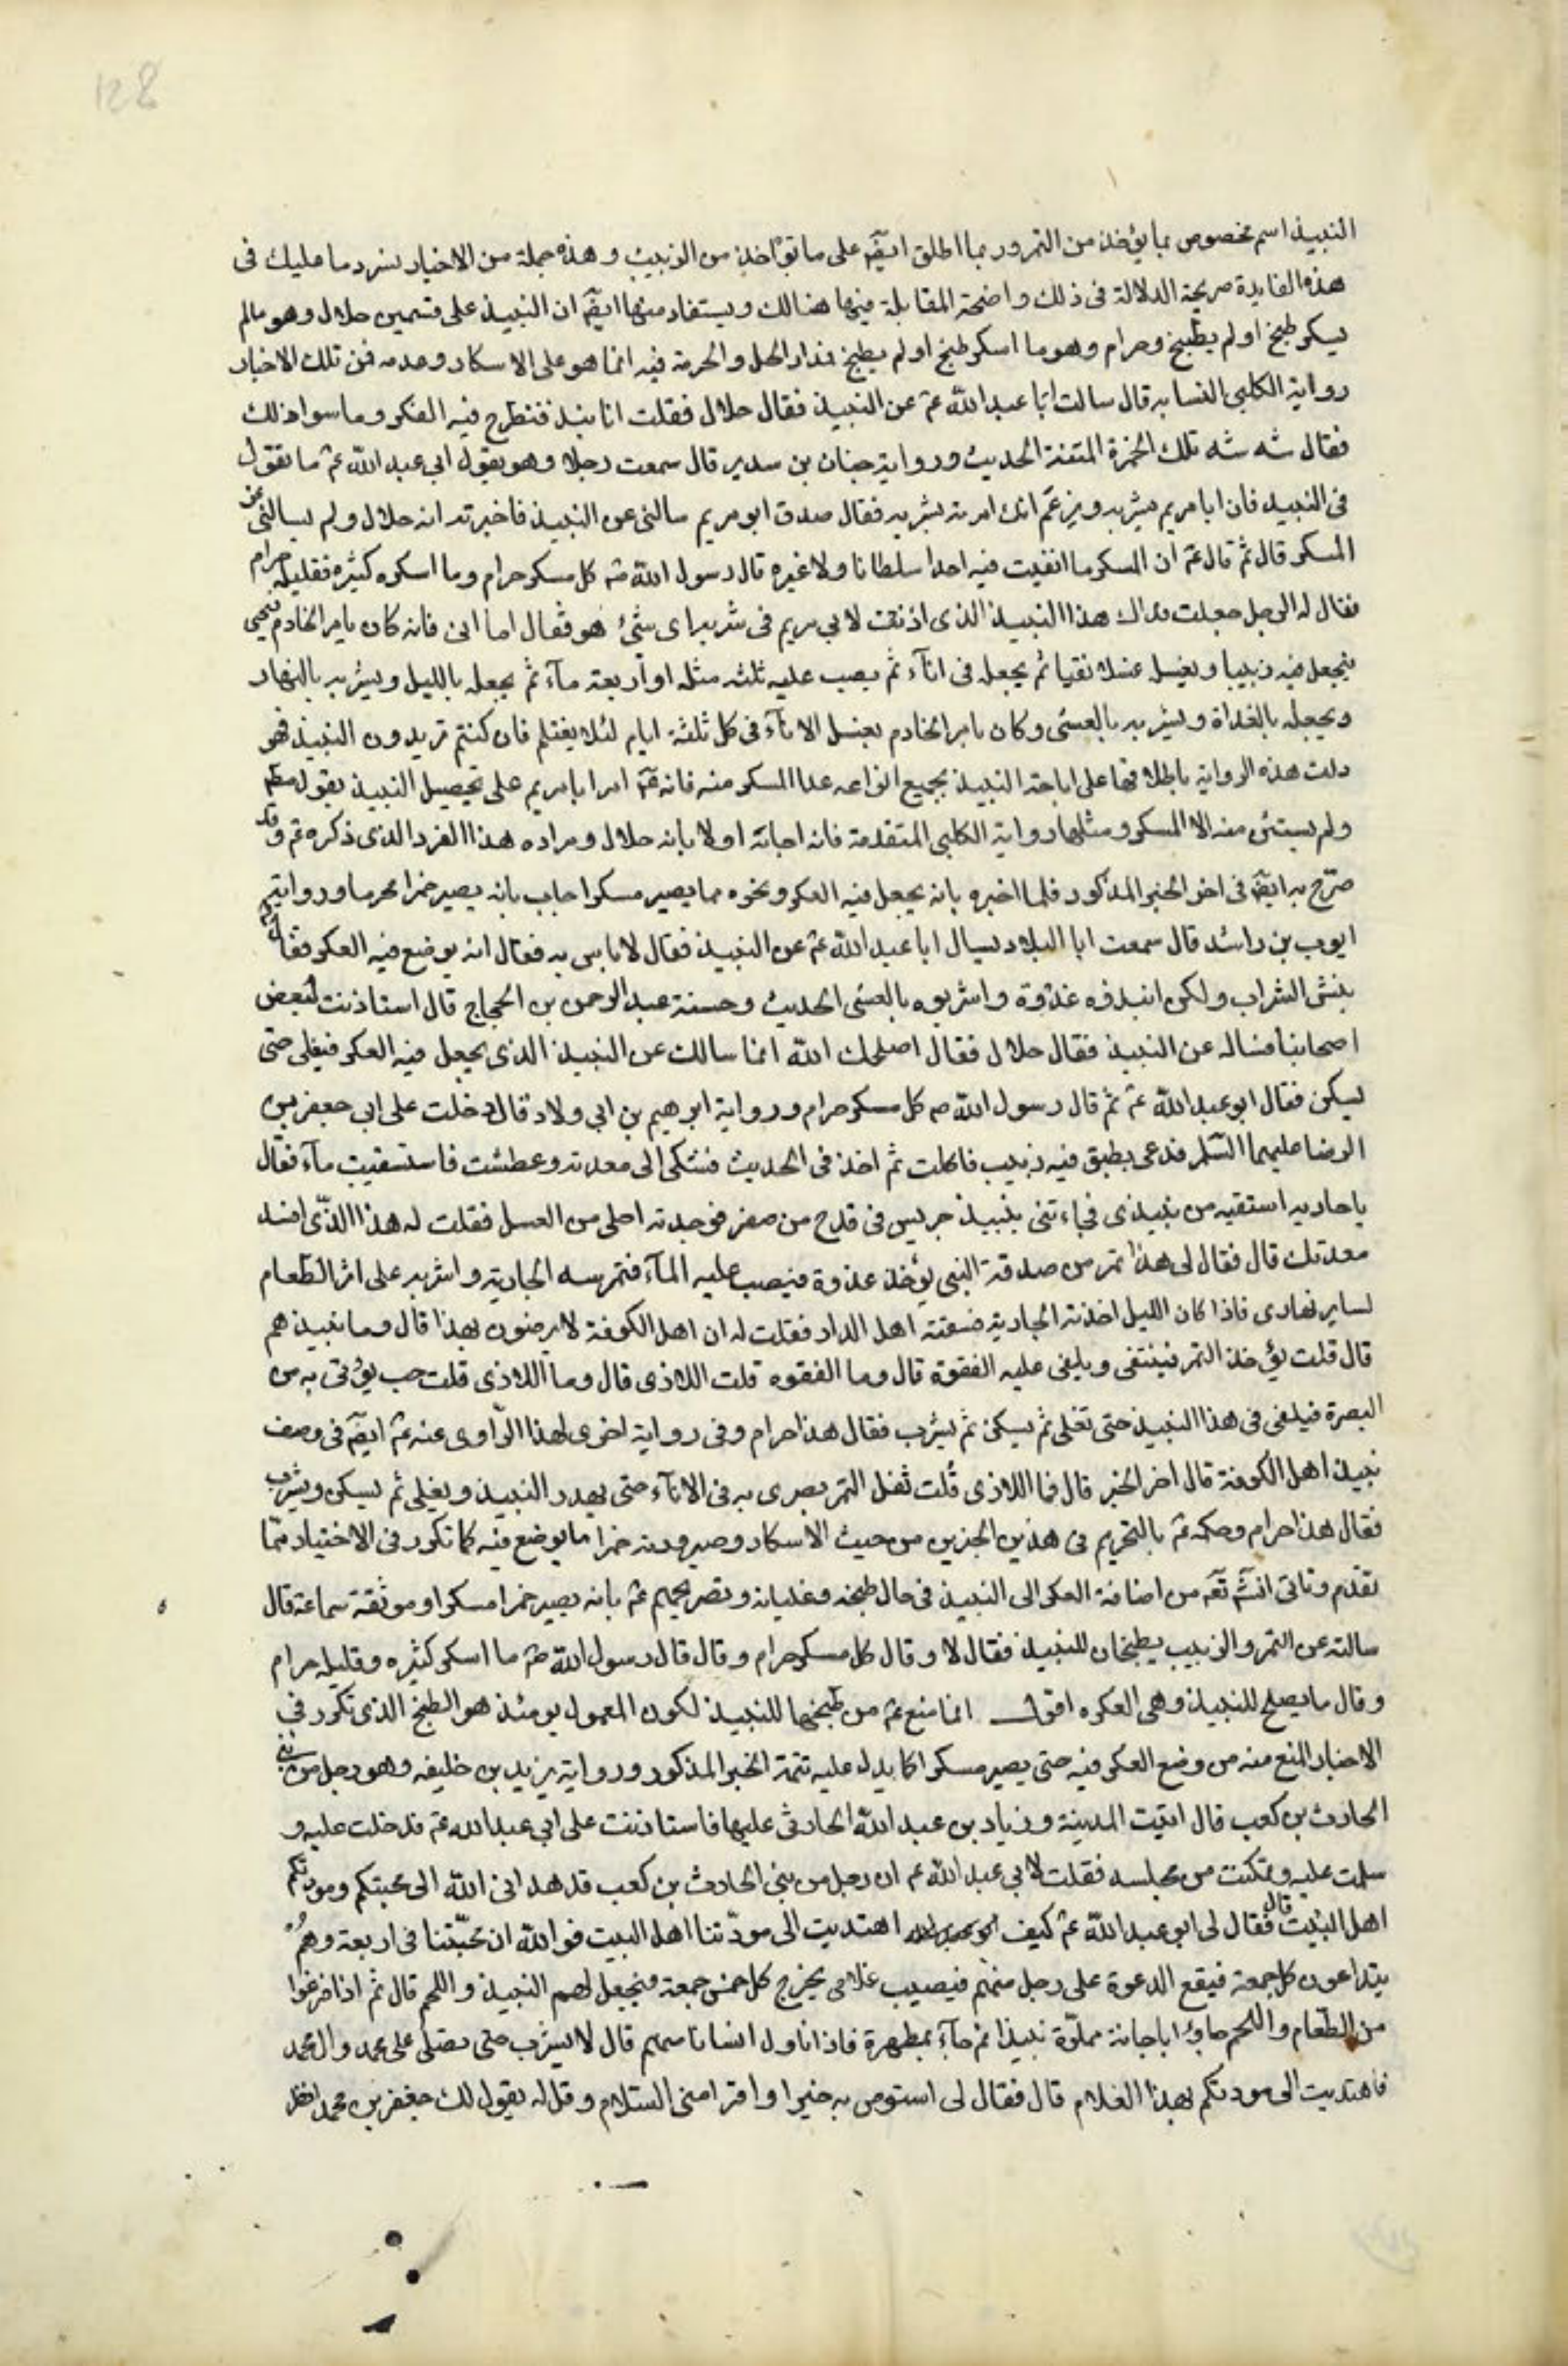 128
النبيذ اسم مخصوص بما يؤخذ من التمر وربما اطلق ايضا على ما يؤخذ من الزبيب وهذه جملة من الاخبار نسردها عليك في
هذه الفايدة صريحة الدلالة في ذلك واضحة المقابلة فيها هنالك ويستفاد منها ايضا ان النبيذ على قسمين حلال وهو مالم
يسكر طبخ او لم يطبخ وحرام وهو ما اسكر طبخ او لم يطبخ فمدار الحل والحرمة فيه انما هو على الاسكار وعدمه فمن تلك الاخبار
رواية الكلبي النسابه قال سالت ابا عبد الله عم عن النبيذ فقال حلال فقلت انا ننبذ فنطرح فيه العكر وما سوا ذلك
فقال شه شه تلك الخمرة المنتنة الحديث ورواية حنان بن سدير قال سمعت رجلا وهو يقول لابي عبد الله عم ما تقول
في النبيذ فان ابا مريم يشربه ويزعم انك امرته بشربه فقال صدق ابو مريم سالني عن النبيذ فاخبرته انه حلال ولم يسالني عن
المسكر قال ثم قال عم ان المسكر ما اتقيت فيه احدا سلطانا ولا غيره قال رسول الله صم كل مسكر حرام وما اسكر كثيره فقليله حرام
فقال له الرجل جعلت فداك هذا النبيذ الذي اذنت لابي مريم في شربه اي شئ هو فقال اما ابي فانه كان يامر الخادم فيجئ
فيجعل فيه زبيبا ويغسل غسلا نقيا ثم يجعل في اناء ثم يصب عليه ثلثه مثله او اربعة ماء ثم يجعله بالليل ويشربه بالنهار
ويجعله بالغداة ويشربه بالعشي وكان يامر الخادم بغسل الاناء في كل ثلثة ايام لئلا يغتلم فان كنتم تريدون النبيذ فهو
دلت هذه الرواية باطلاقها على اباحة النبيذ بجميع انواعه عدا المسكر منه فانه عم امر ابا مريم على تحصيل النبيذ بقول مطلق
ولم يستثن منه الا المسكر ومثلها رواية الكلبي المتقدمة فانه اجابه اولا بانه حلال ومراده هذا الفرد الذي ذكره عم وقد
صرح به ايضا في اخر الخبر المذكور فلما اخبره بانه يجعل فيه العكر ونحوه مما يصير مسكرا اجاب بانه يصير خمرا محرما ورواية
ايوب بن راشد قال سمعت ابا البلاد يسال ابا عبد الله عم عن النبيذ فقال لا باس به فقال انه يوضع فيه العكر فقال عم
بئس الشراب ولكن انبذوه غدوة واشربوه بالعشي الحديث وحسنة عبد الرحمن بن الحجاج قال استاذنت لبعض
اصحابنا فساله عن النبيذ فقال حلال فقال اصلحك الله انما سالك عن النبيذ الذي يجعل فيه العكر فيغلي حتى
يسكن فقال ابو عبد الله عم ثم قال رسول الله صم كل مسكر حرام ورواية ابرهيم بن ابي ولاد قال دخلت على ابي جعفر بن
الرضا عليهما السلم فدعى بطبق فيه زبيب فاكلت ثم اخذ في الحديث فشكى الى معدته وعطشت فاستسقيت ماء فقال
يا جاريه استقيه من نبيذي فجاءتني بنبيذ جريس في قدح من صفر فوجدته احلى من العسل فقلت له هذا الذي افسد
معدتك قال فقال لي هذا تمر من صدقة النبي يؤخذ غدوة فيصب عليه الماء فتمرسه الجارية واشربه على اثر الطعام
لساير نهاري فاذا كان الليل اخذته الجارية فسقته اهل الدار فقلت له ان اهل الكوفة لا يرضون بهذا قال وما نبيذهم
قال قلت يؤخذ التمر فينتقى ويلقى عليه القعوة قال وما القعوه قلت اللاذي قال وما اللاذي قلت حب يؤتى به من
البصرة فيلقى في هذا النبيذ حتى تغلي ثم يسكن ثم يشرب فقال هذا حرام وفي رواية اخرى لهذا الراوي عنه عم ايضا في وصف
نبيذ اهل الكوفة قال اخر الخبر قال فما اللاذي قلت ثفل التمر يصرى به في الاناء حتى يهدر النبيذ ويغلي ثم يسكن ويشرب
فقال هذا حرام وحكمه عم بالتحريم في هذين الخبرين من حيث الاسكار وصيرورته خمرا ما يوضع فيه كما تكرر في الاخبار مما
تقدم وتاتي انشه تعه من اضافة العكر الى النبيذ في حال طبخه وغليانه وتصريحهم عم بانه يصير خمرا مسكرا وموثقة سماعة قال
سالته عن التمر والزبيب يطبخان للنبيذ فقال لا وقال كل مسكر حرام وقال قال رسول الله صم ما اسكر كثيره وقليله حرام
وقال ما يصلح للنبيذ وهي العكره اقول انما منع عم من طبخها للنبيذ لكون المعمول يومئذ هو الطبخ الذي تكرر في
الاخبار المنع منه من وضع العكر فيه حتى يصير مسكرا كما يدل عليه تتمة الخبر المذكور ورواية يزيد بن خليفه وهو رجل من بني
الحارث بن كعب قال اتيت المدينة وزياد بن عبد الله الحارثي عليها فاستاذنت على ابي عبد الله عم فدخلت عليه و
سلمت عليه وتمكنت من مجلسه فقلت لابي عبد الله عم ان رجل من بني الحارث بن كعب قد هداني الله الى محبتكم ومودتكم
اهل البيت قال فقال لي ابو عبد الله عم كيف اهتديت الى مودتنا اهل البيت فوالله ان محبتنا في اربعة وهم
يتداعون كل جمعة فيقع الدعوة على رجل منهم فيصيب غلامي يخرج كل خمس جمعة فيجعل لهم النبيذ واللحم قال ثم اذا فرغوا
من الطعام واللحم جاؤا باجانة مملوة نبيذا ثم جاء بمطهرة فاذا ناول انسانا منهم قال لا يشرب حتى تصلى على محمد وال محمد
فاهتديت الى مودتكم بهذا الغلام قال فقال لي استوص به خيرا واقرا مني السلام وقل له يقول لك جعفر بن محمد انظر